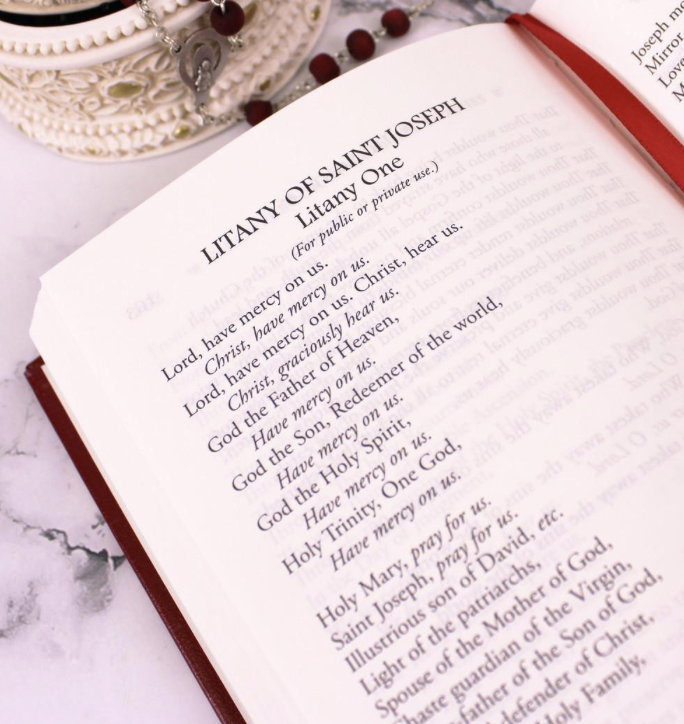 LITANY OF SAINT JOSEPH
Litany One
(For public or private use.)
Lord, have mercy on us.
Christ, have mercy on us.
Lord, have mercy on us. Christ, hear us.
Christ, graciously hear us.
God the Father of Heaven,
Have mercy on us.
God the Son, Redeemer of the world,
Have mercy on us.
God the Holy Spirit,
Have mercy on us.
Holy Trinity, One God,
Have mercy on us.
Holy Mary, pray for us.
Saint Joseph, pray for us.
Illustrious son of David, etc.
Light of the patriarchs,
Spouse of the Mother of God,
guardian of the Virgin,
father of the Son of God,
defender of Christ,
Family,
Joseph
Mirror